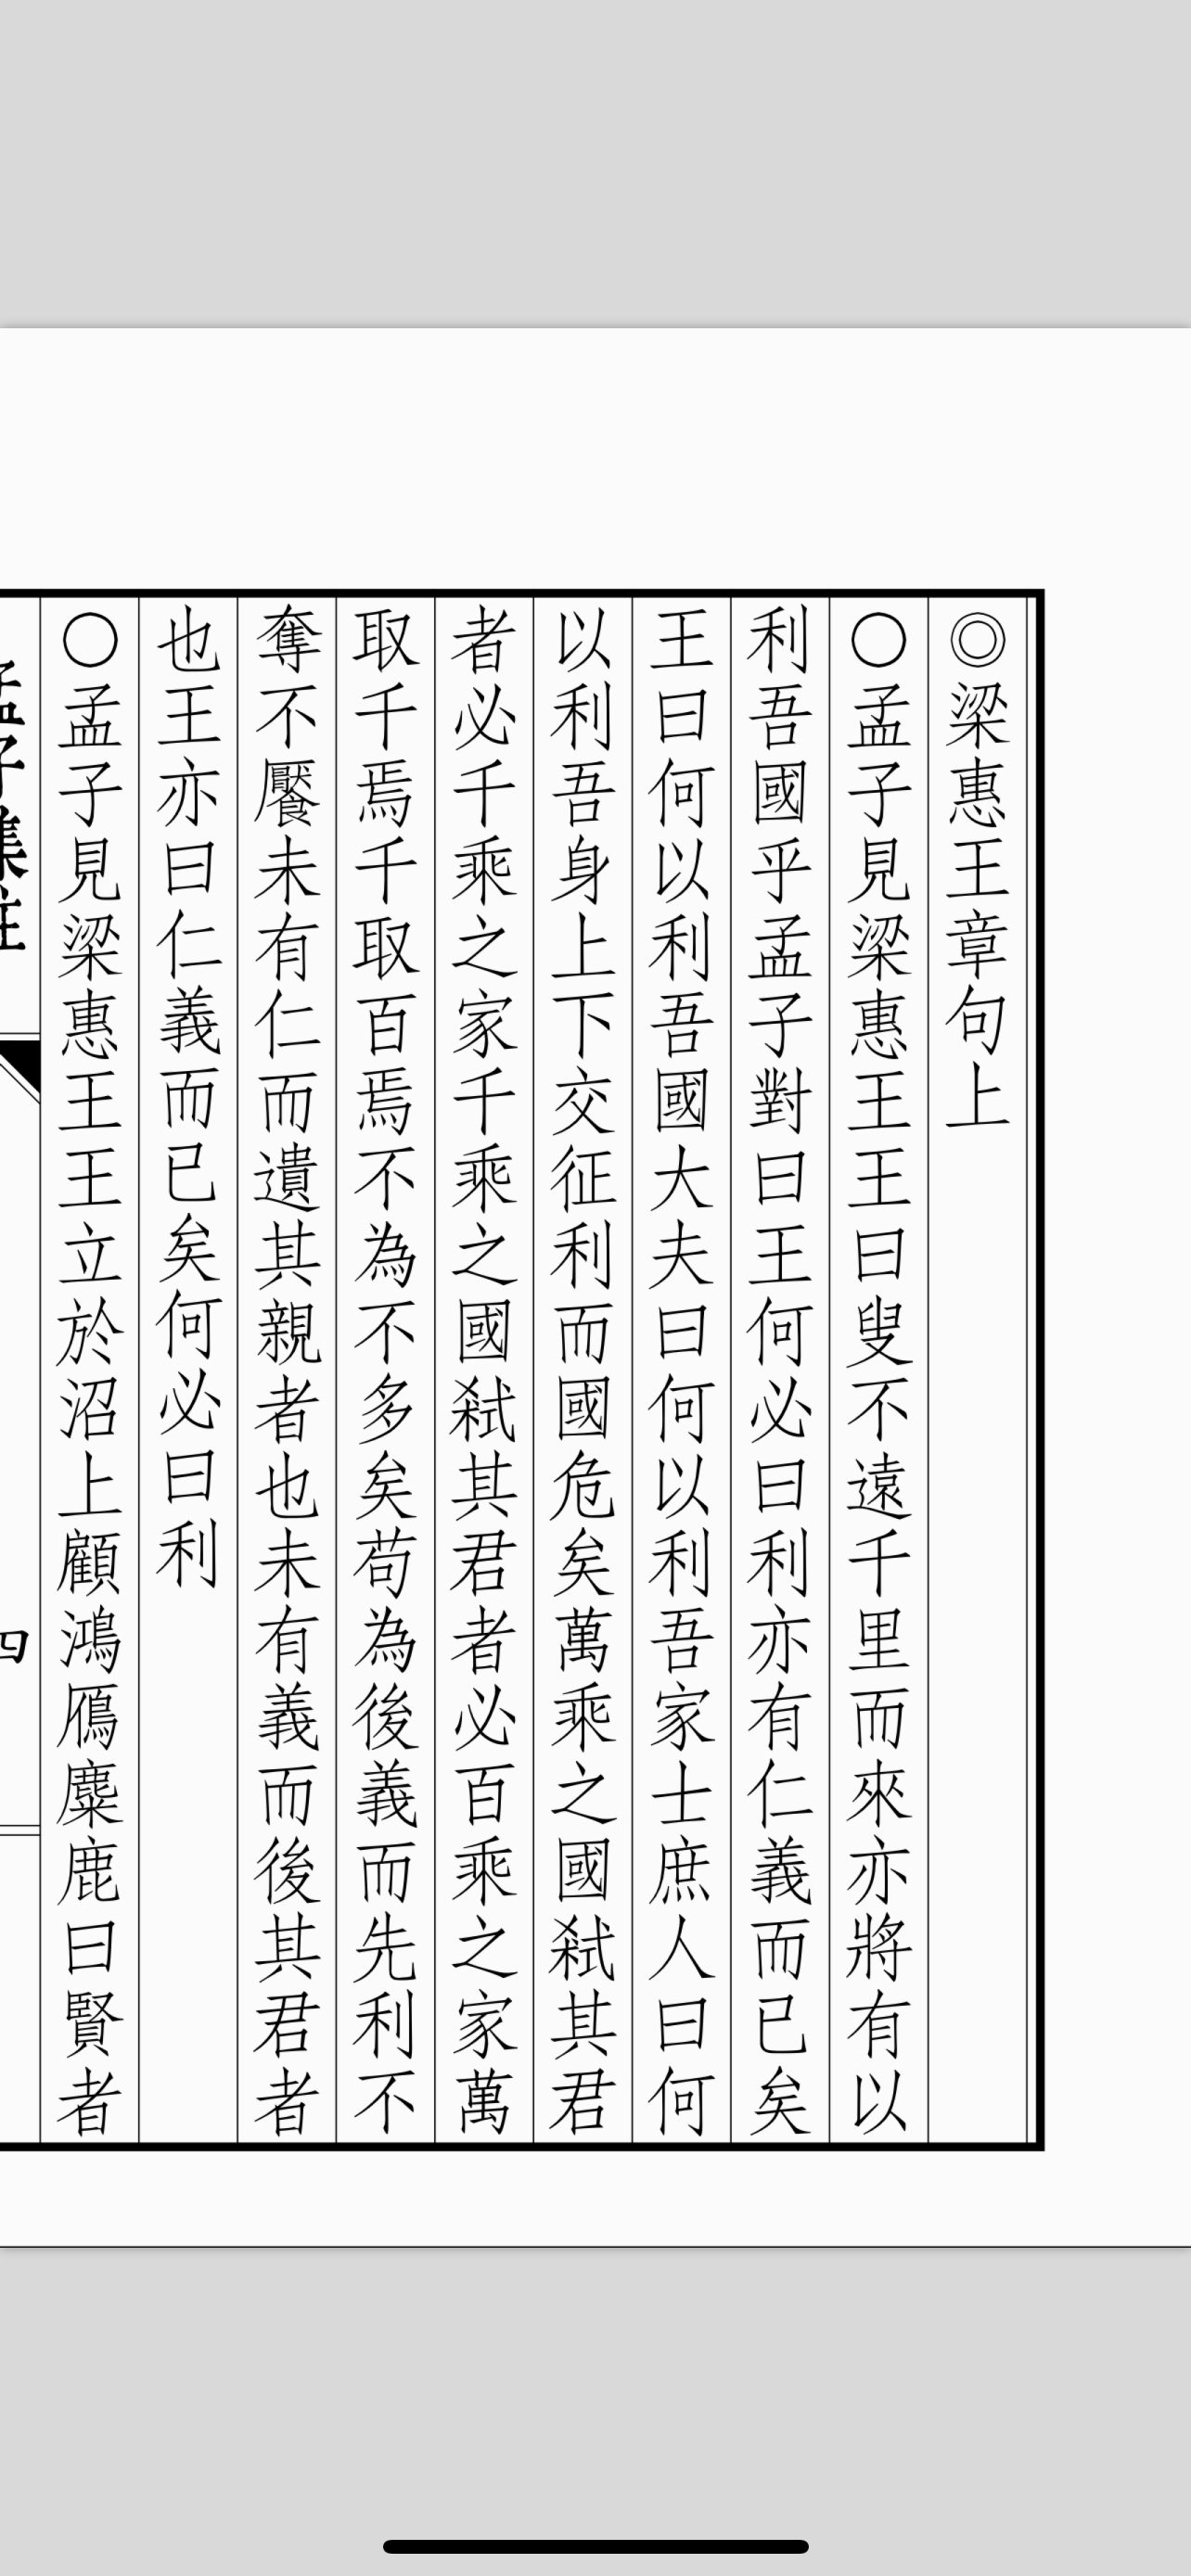 ◎梁惠王章句上
○孟子見梁惠王王曰叟不遠千里而來亦將有以
利吾國乎孟子對曰王何必曰利亦有仁義而已矣
王曰何以利吾國大夫曰何以利吾家士庶人曰何
以利吾身上下交征利而國危矣萬乘之國弒其君
者必千乘之家千乘之國弒其君者必百乘之家萬
取千焉千取百焉不為不多矣苟為後義而先利不
奪不饜未有仁而遺其親者也未有義而後其君者
也王亦曰仁義而已矣何必曰利
○孟子見梁惠王王立於沼上顧鴻鴈麋鹿曰賢者
孟子集註
四